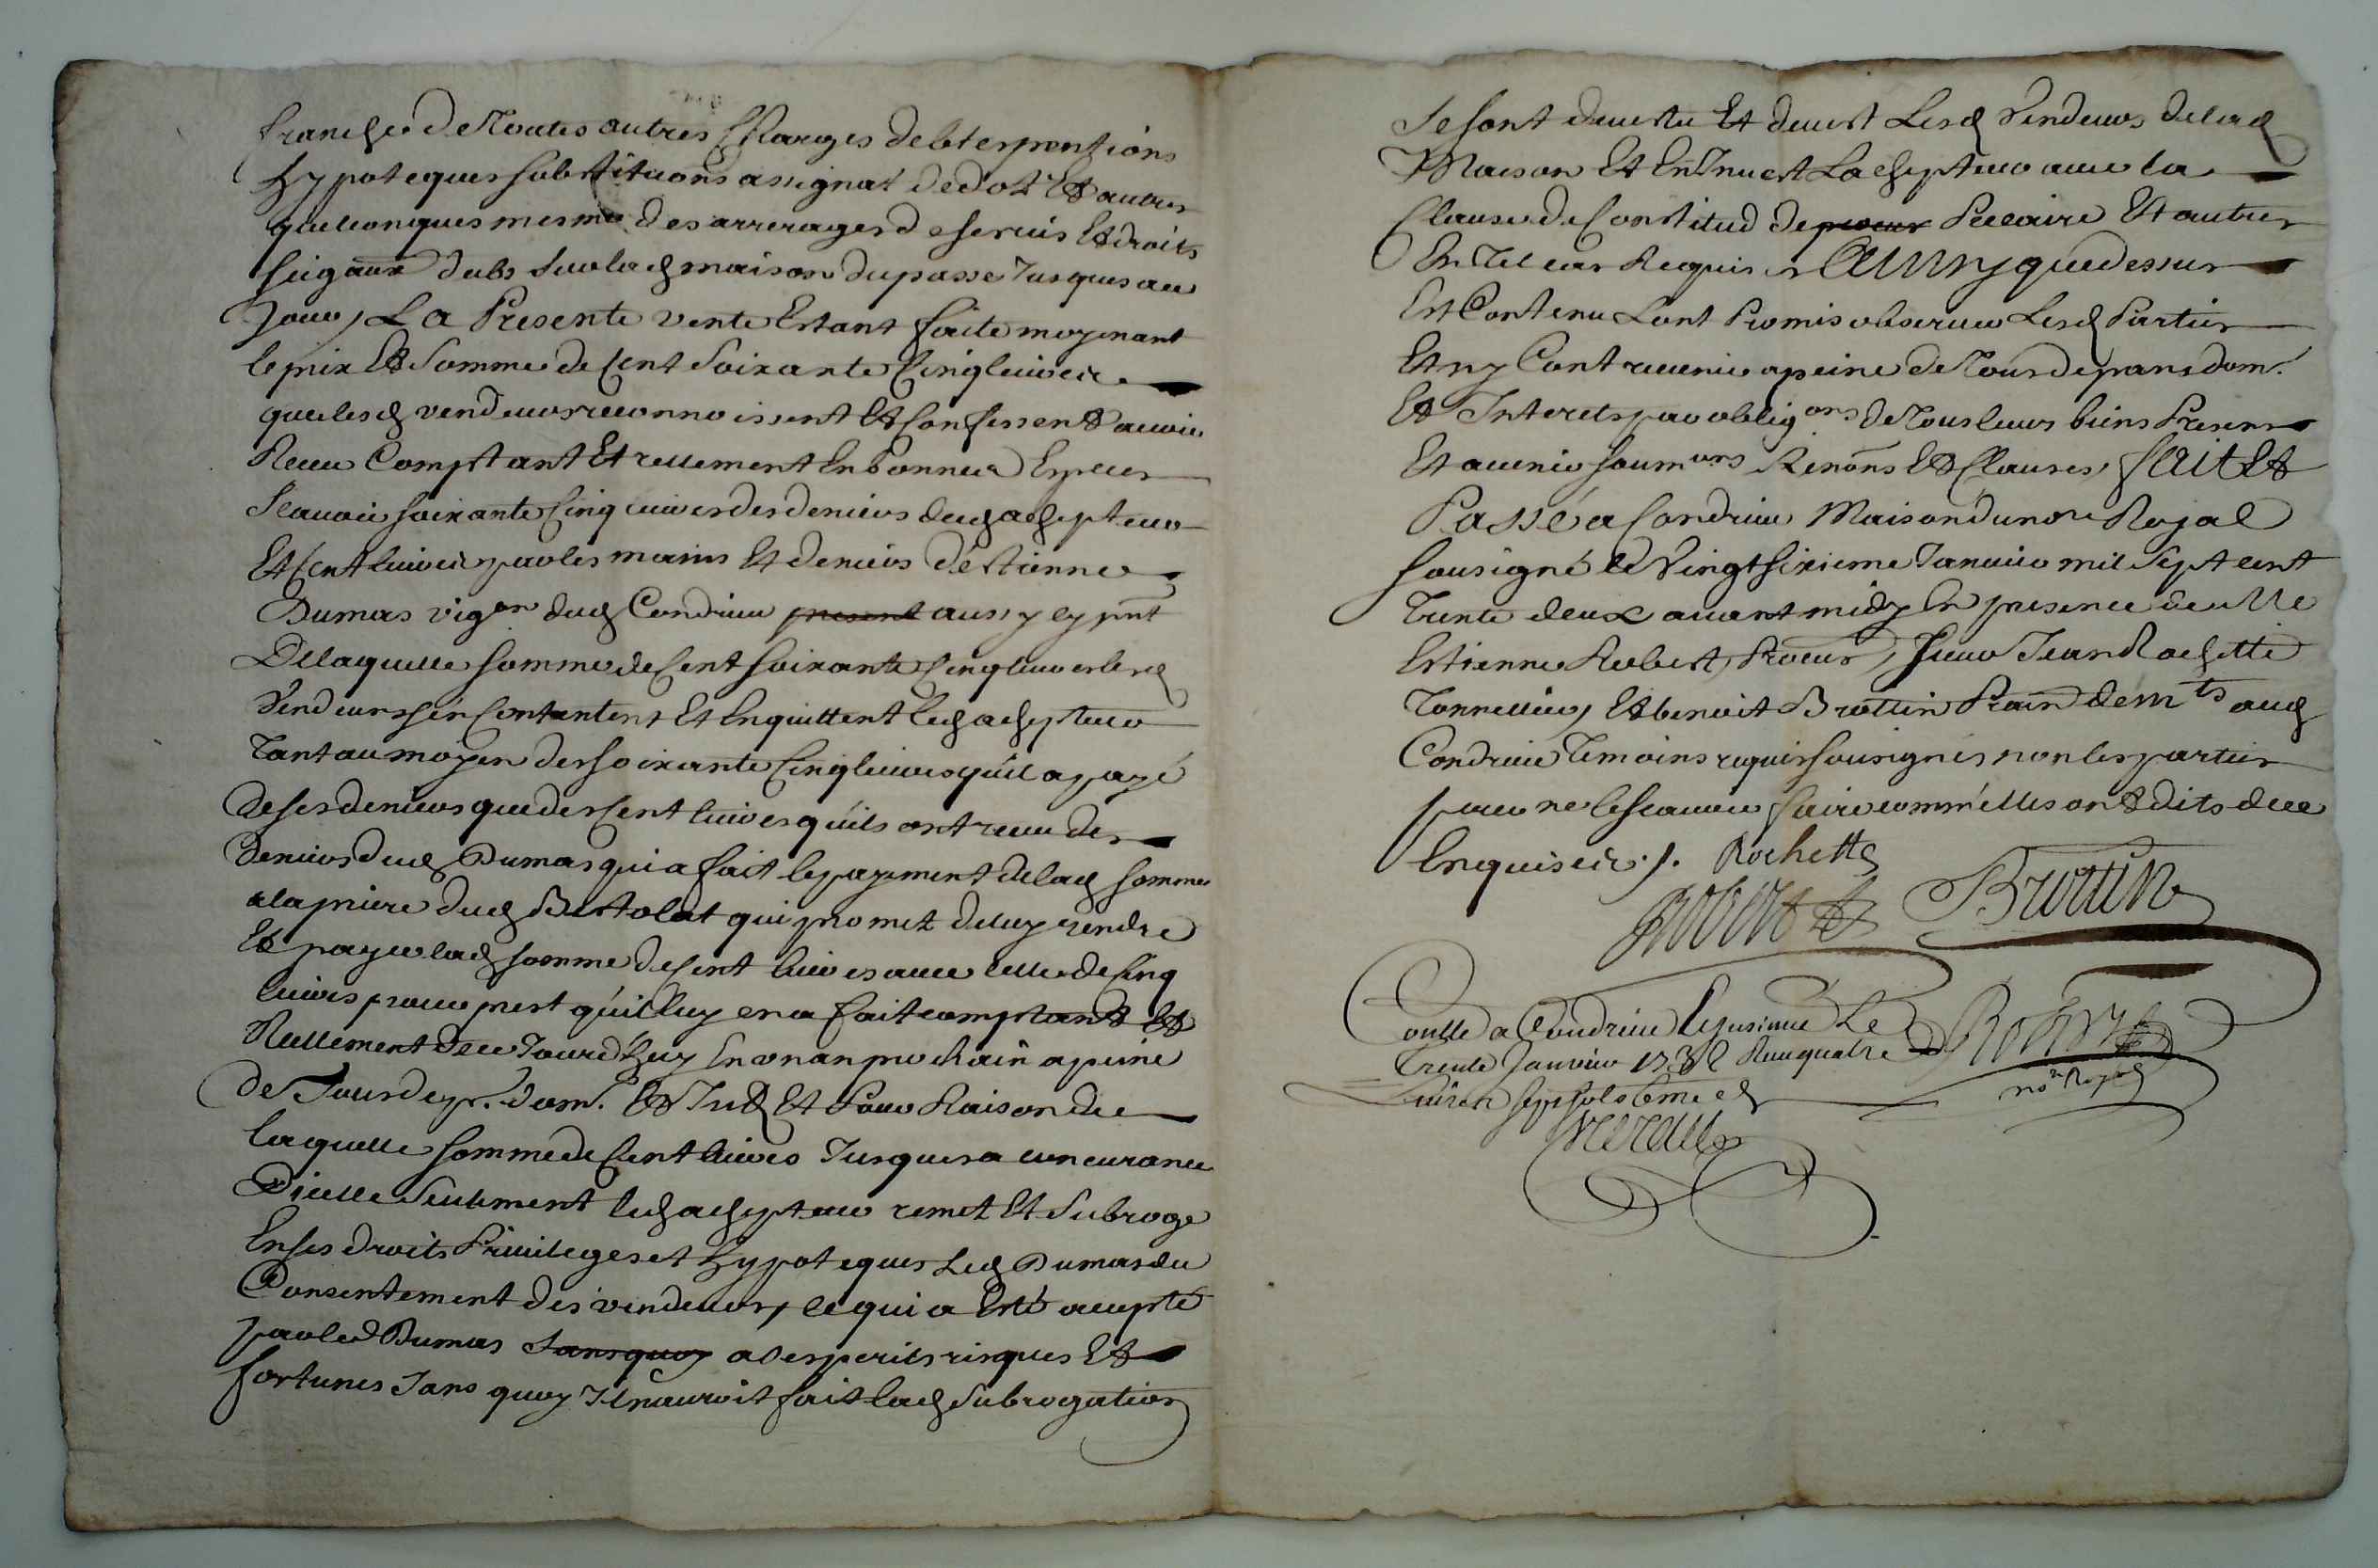 franche de Toutes autres Charges debtes pentions
hypoteques substituons assignat de dot Et autres
quelconques mesme des arrerages de seruis Et droits
seigaux dubs sur lad maison du passé Jusques a ce
Jour, La Presente vente Estant faite moyenant
le prix Et Somme de Cent Soixante Cinq liures
que lesd vendeurs reconnoissent Et Confessent auoir
Receu Comptant Et reellement En bonnes Especes
Scauoir soixante Cinq liures des deniers dud achepteur
Et Cent liures par les mains Et deniers d'Estienne
Dumas vigon dud Condrieu present aussy cy pnt
De laquelle somme de Cent soixante Cinq liures lesd
Vendeurs s'en Contentent Et En quittent led achepteur
Tant au moyen des soixante Cinq liures qu'il a payé
de ses deniers que des Cent liures qu'ils ont receu des
deniers dud Dumas qui a fait le payement de lad somme
a la priere dud Bertolat qui promet de luy rendre
Et payer lad somme de Cent liures auec celle de Cinq
liures pour prest qu'il luy en a fait comptant Et
Reellement de ce Jourd'huy En un an prochain a peine
de Tous dep. dom. Et Int Et Pour Raison de
laquelle somme de Cent liures Jusques a concurance
D'icelle Seulement led achepteur remet Et Subroge
En ses droits Priuileges et hypoteques Led Dumas du
Consentement des vendeurs, ce qui a Esté accepté
par led Dumas Sans quoy a ses perils risques Et
fortunes Sans quoy Il n'auroit fait lad Subrogation
Se sont deuestu Et deuest Lesd Vendeurs de lad
Maison Et En Inuest Lachepteur auec la
Clause de Constitud de Precaire Et autres
En Tel cas Requises Ainsy que dessus
Est Contenu Lont Promis obseruer Lesd Parties
Et n'y Contreuenir a peine de Tous depans dom.
Et Interets par obligons de Tous leurs biens Presens
Et auenir soumons Renons Et Clauses, fait Et
Passé a Condrieu Maison du nore Royal
sousigné Le Vingt sixieme Januier mil Sept cent
Trente deux auant midy En presence de Me
Estienne Robert, Procur, sieur Jean Rochette
Tonnellier, Et benoit Brottin Prain demts aud
Condrieu Temoins requis sousignés non les parties
pour ne le Scauoir faire comm'elles ont dits de ce
Enquises. Rochette
Robert Brottin
Conllé a Condrieu Le
Trente Januier 1732 Receu quatre
liures sept sols Robert
nore Royal